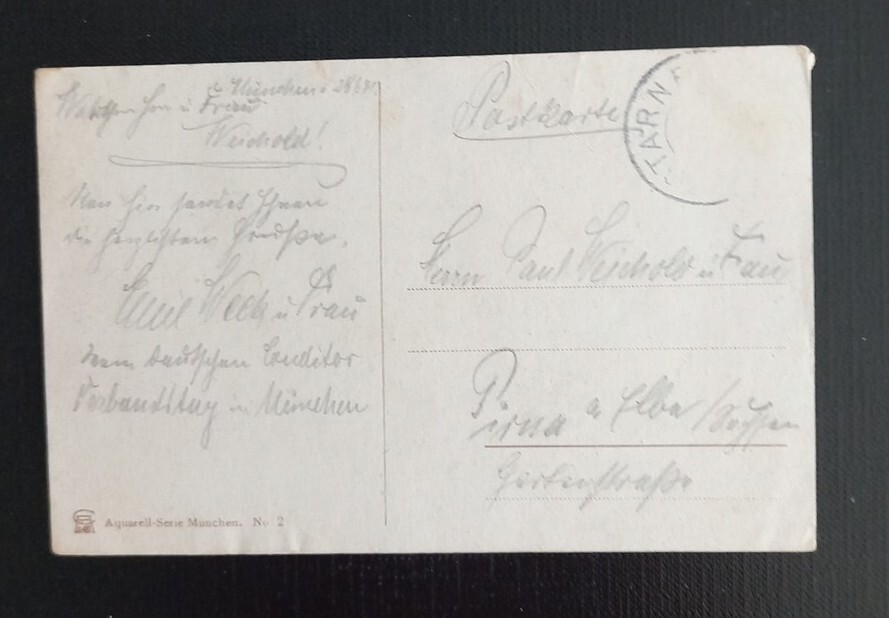 München
u Frau
Weichold!
Von hier sendet Ihnen
die herzlichsten Grüße.
Emil u Frau
deutschen Conditor
Verbandstag in München
Aquarell-Serie München. No 2
Postkarte
TARN
Herrn Paul Weichold u Frau
Pirna a Elbe / Sachsen
Gartenstraße